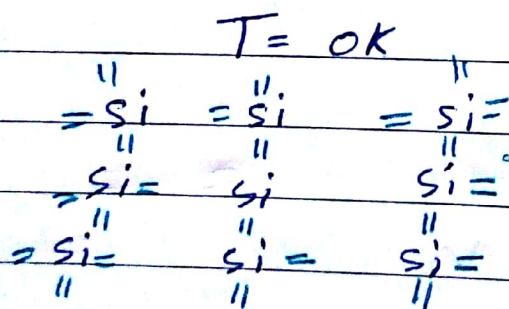 T = 0K
" " "
= Si = Si = Si =
" " "
= Si = Si Si =
" " "
= Si = Si = Si =
" " "